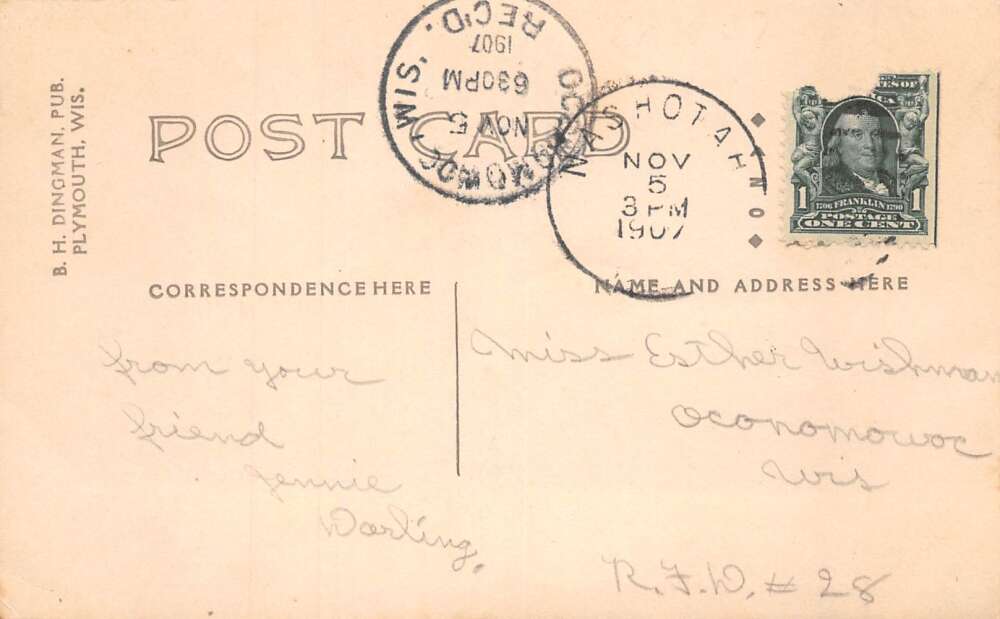 B. H. DINGMAN, PUB.
PLYMOUTH, WIS.
POST CARD
OCONOMOWOC, WIS.
NOV 5
630PM
1907
REC'D.
NASHOTAH
NOV
5
3 PM
1907
TES OF
CA
1 1
1706 FRANKLIN 1790
POSTAGE
ONE CENT
CORRESPONDENCE HERE
from your
friend
Jennie
Darling.
NAME AND ADDRESS HERE
Miss Esther Wishman
Oconomowoc
Wis
R.F.D. # 28